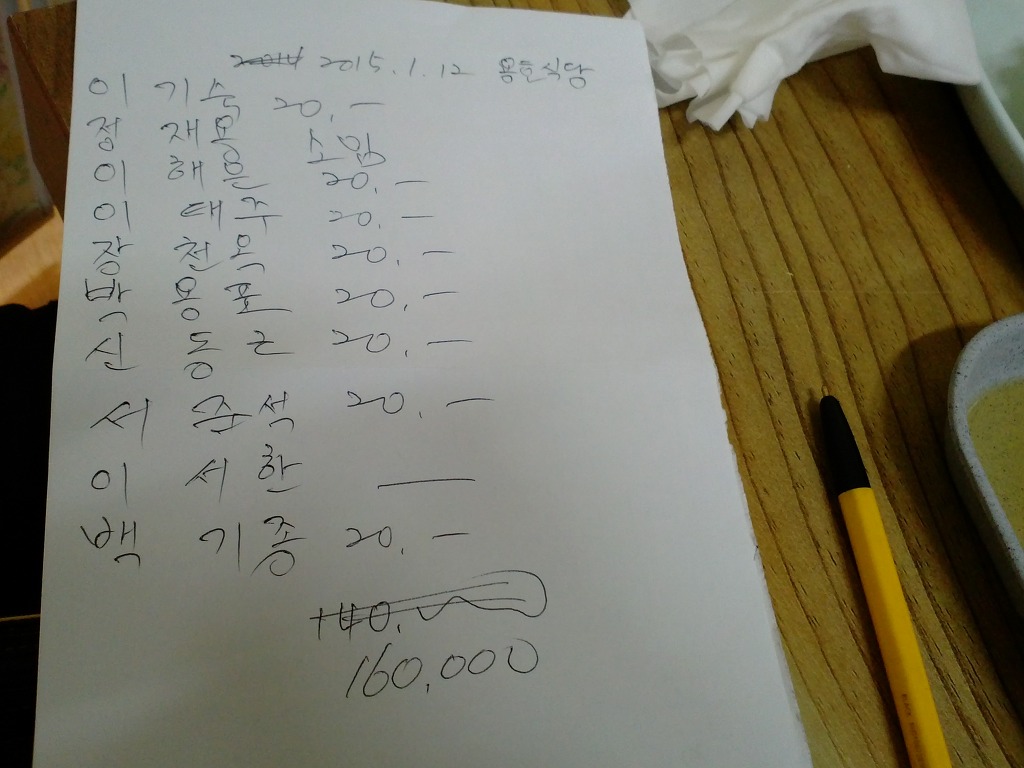 2014 2015.1.12 용호식당
이 기숙 20,—
정 재목 소임
이 해운 20,—
이 태주 20,—
장 천옥 20,—
박 용표 20,—
신 동근 20,—
서 준석 20,—
이 서한 —
백 기종 20,—
140,
160,000